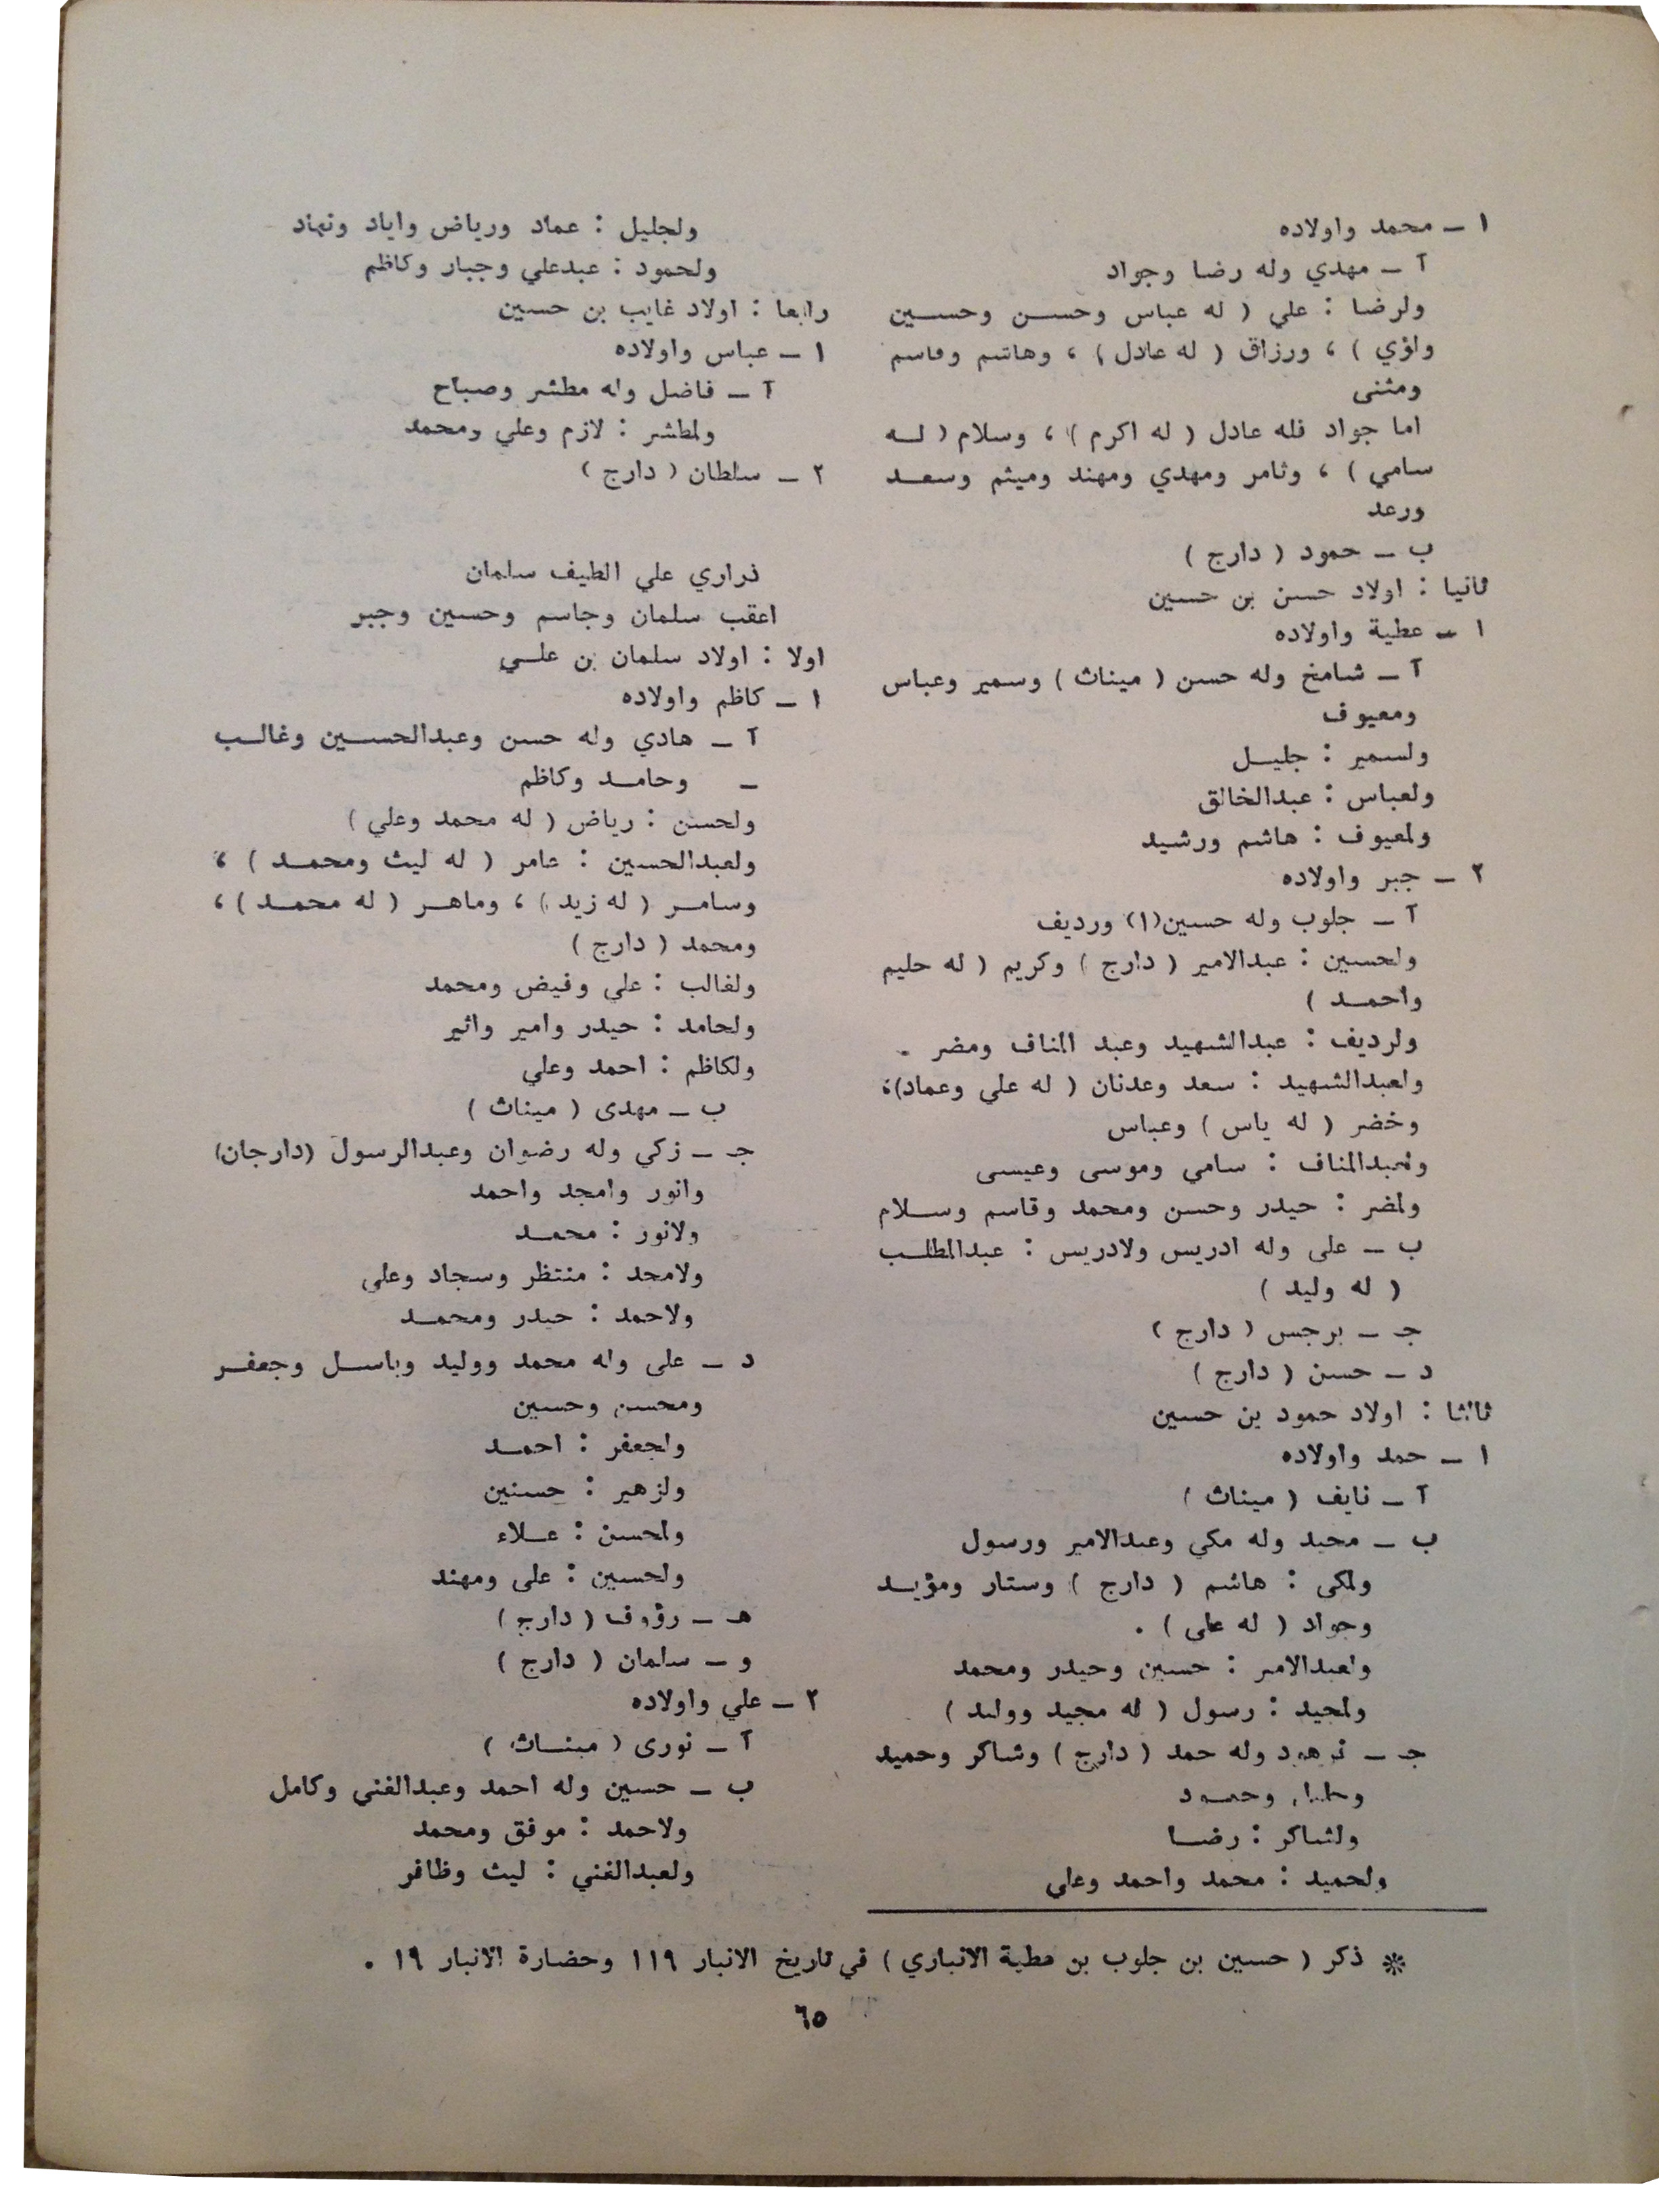 ١ ـ محمد واولاده
آ ـ مهدي وله رضا وجواد
ولرضا : علي ( له عباس وحسن وحسين
ولؤي ) ، ورزاق ( له عادل ) ، وهاشم وقاسم
ومثنى
اما جواد فله عادل ( له اكرم ) ، وسلام ( له
سامي ) ، وثامر ومهدي ومهند وميثم وسعد
ورعد
ب ـ حمود ( دارج )
ثانيا : اولاد حسن بن حسين
١ ـ عطية واولاده
آ ـ شامخ وله حسن ( ميناث ) وسمير وعباس
ومعيوف
ولسمير : جليل
ولعباس : عبدالخالق
ولمعيوف : هاشم ورشيد
٢ ـ جبر واولاده
آ ـ جلوب وله حسين (١) ورديف
ولحسين : عبدالامير ( دارج ) وكريم ( له حليم
واحمد )
ولرديف : عبدالشهيد وعبد المناف ومضر .
ولعبدالشهيد : سعد وعدنان ( له علي وعماد)،
وخضر ( له ياس ) وعباس
ولعبدالمناف : سامي وموسى وعيسى
ولمضر : حيدر وحسن ومحمد وقاسم وسلام
ب ـ على وله ادريس ولادريس : عبدالمطلب
( له وليد )
جـ ـ برجس ( دارج )
د ـ حسن ( دارج )
ثالثا : اولاد حمود بن حسين
١ ـ حمد واولاده
آ ـ نايف ( ميناث )
ب ـ مجيد وله مكي وعبدالامير ورسول
ولمكى : هاشم ( دارج ) وستار ومؤيد
وجواد ( له على ) .
ولعبدالامير : حسين وحيدر ومحمد
ولمجيد : رسول ( له مجيد ووليد )
جـ ـ وله حمد ( دارج ) وشاكر وحميد
وجليل وحمود
ولشاكر : رضا
ولحميد : محمد واحمد وعلي
ولجليل : عماد ورياض واياد ونهاد
ولحمود : عبدعلي وجبار وكاظم
رابعا : اولاد غايب بن حسين
١ ـ عباس واولاده
آ ـ فاضل وله مطشر وصباح
ولمطشر : لازم وعلي ومحمد
٢ ـ سلطان ( دارج )
ذراري علي الطيف سلمان
اعقب سلمان وجاسم وحسين وجبر
اولا : اولاد سلمان بن علي
١ ـ كاظم واولاده
آ ـ هادي وله حسن وعبدالحسين وغالب
ـ وحامد وكاظم
ولحسن : رياض ( له محمد وعلي )
ولعبدالحسين : عامر ( له ليث ومحمد ) ،
وسامر ( له زيد ) ، وماهر ( له محمد ) ،
ومحمد ( دارج )
ولغالب : علي وفيض ومحمد
ولحامد : حيدر وامير واثير
ولكاظم : احمد وعلي
ب ـ مهدى ( ميناث )
جـ ـ زكي وله رضوان وعبدالرسول (دارجان)
وانور وامجد واحمد
ولانور : محمد
ولامجد : منتظر وسجاد وعلى
ولاحمد : حيدر ومحمد
د ـ على وله محمد ووليد وباسل وجعفر
ومحسن وحسين
ولجعفر : احمد
ولزهير : حسنين
ولمحسن : علاء
ولحسين : على ومهند
هـ ـ رؤوف ( دارج )
و ـ سلمان ( دارج )
٢ ـ علي واولاده
آ ـ نورى ( ميناث )
ب ـ حسين وله احمد وعبدالغني وكامل
ولاحمد : موفق ومحمد
ولعبدالغني : ليث وظافر
* ذكر ( حسين بن جلوب بن عطية الانباري ) في تاريخ الانبار ١١٩ وحضارة الانبار ١٩ .
٦٥